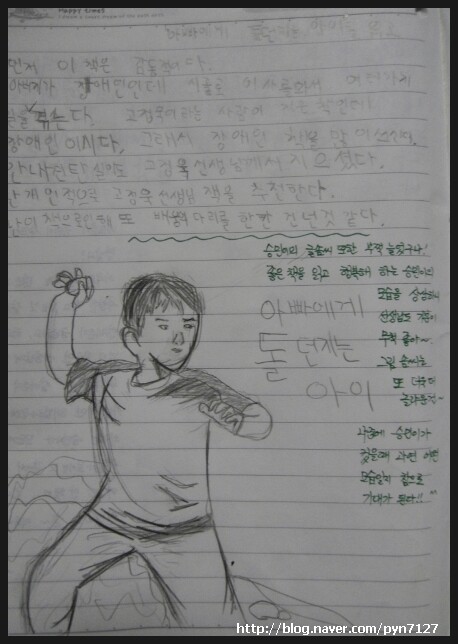 Happy time!
아빠에게 돌 던지는 아이를 읽고
먼저 이 책은 감동적이다.
아버지가 장애인인데 시골로 이사를 와서 여러가지
을 겪는다. 고정욱이라는 사람이 지은 책인데
장애인이시다. 그래서 장애인 책을 많이
고정욱 선생님께서 지으셨다.
고정욱 선생님 책을 추천한다.
이 책으로 인해 또 배움의 다리를 한칸 건넌 것 같다.
승민이의 글솜씨 또한 부쩍 늘었구나!
좋은 책을 읽고 행복해 하는 승민이의
모습을 상상하니
선생님도 기분이
무척 좋아~
그림 솜씨는
또
아빠에게
돌 던지는
아이
나중에 승민이가
과연 어떤
모습일지 참으로
기대가 된다!!
http://blog.naver.com/pyn7127